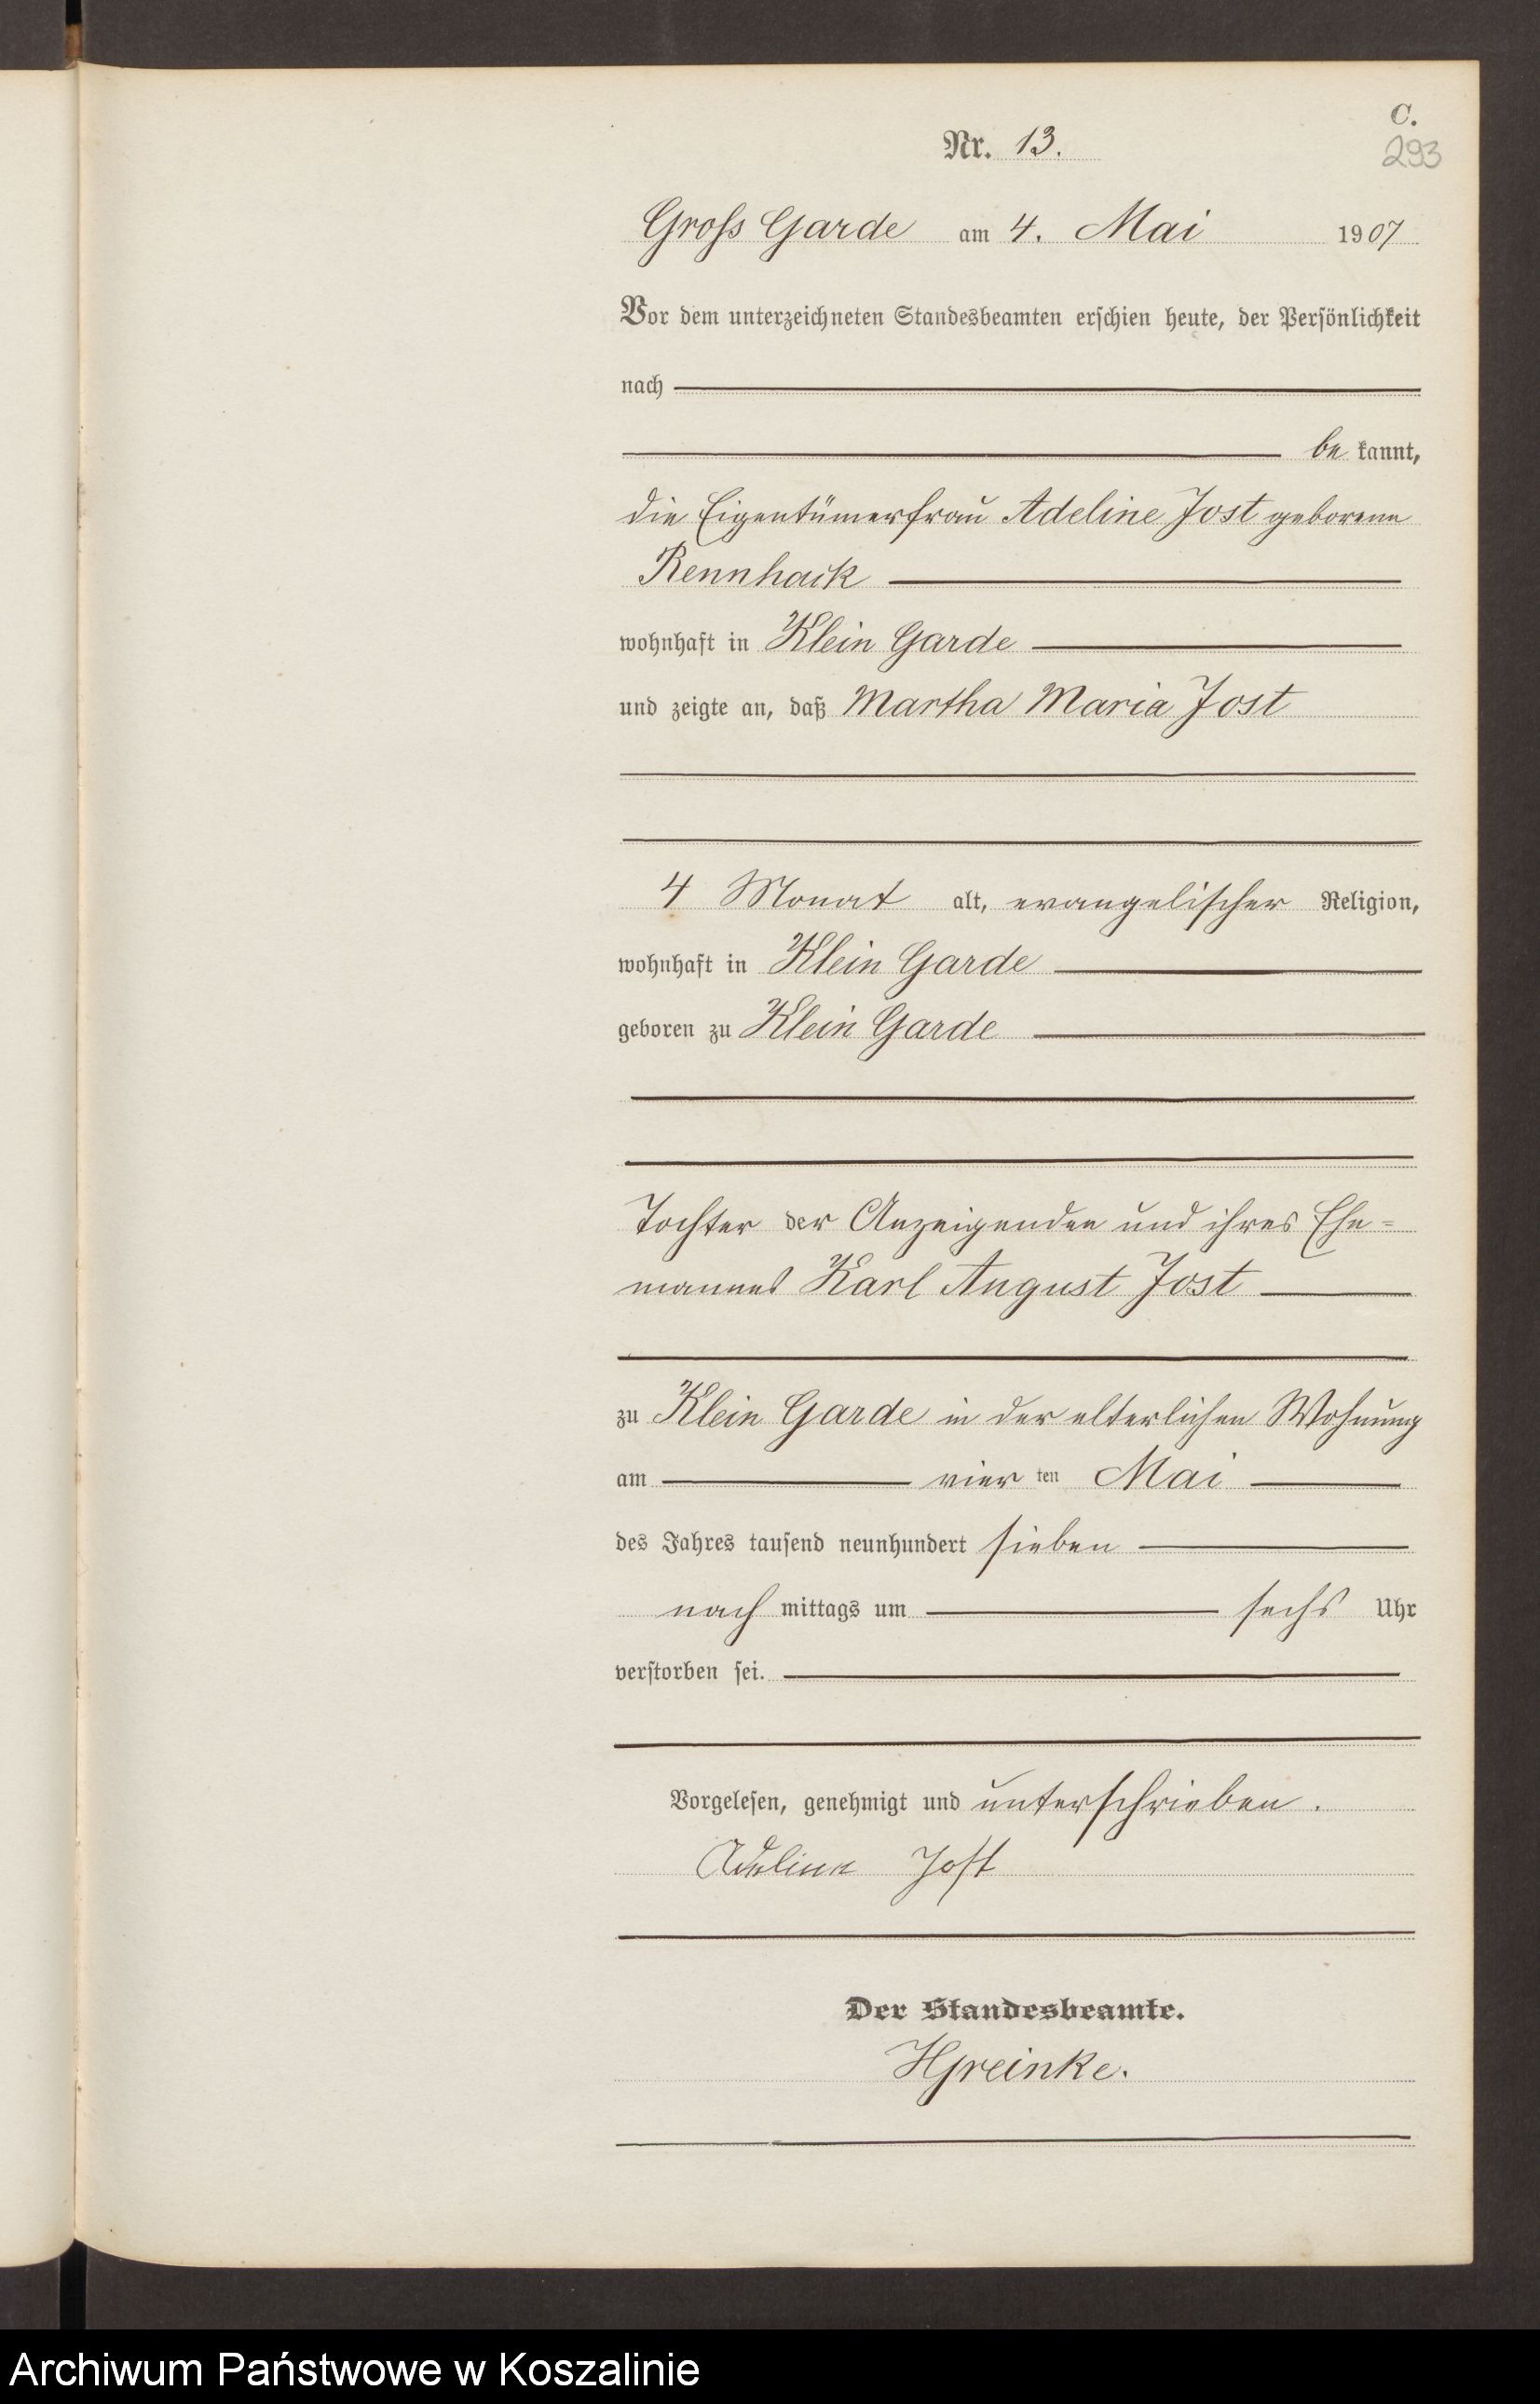 C.
Nr. 13.
293
Gross Garde am 4. Mai 1907
Vor dem unterzeichneten Standesbeamten erschien heute, der Persönlichkeit
nach
be kannt,
die Eigentümerfrau Adeline Jost geborene
Rennhack
wohnhaft in Klein Garde
und zeigte an, daß Martha Maria Jost
4 Monat alt, evangelischer Religion,
wohnhaft in Klein Garde
geboren zu Klein Garde
Tochter der Anzeigenden und ihres Ehe=
mannes Karl August Jost
zu Klein Garde in der elterlichen Wohnung
am vier ten Mai
des Jahres tausend neunhundert sieben
nach mittags um sechs Uhr
verstorben sei.
Vorgelesen, genehmigt und unterschrieben.
Adeline Jost
Der Standesbeamte.
Archiwum Państwowe w Koszalinie